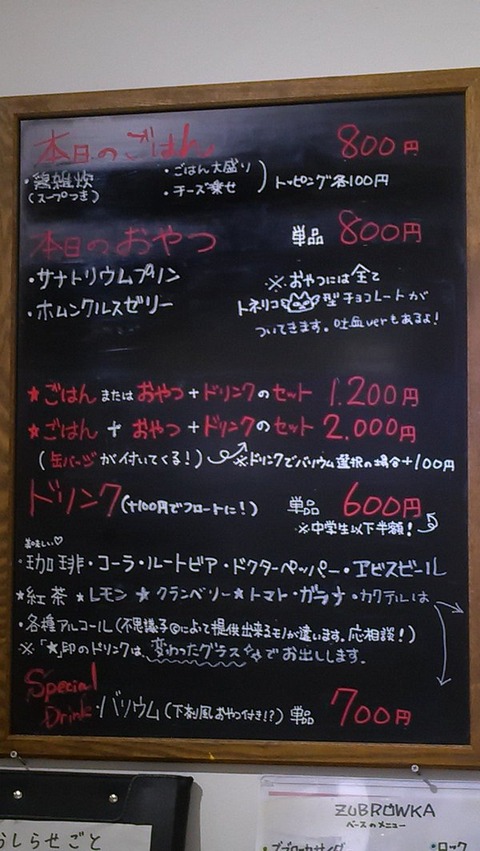 本日のごはん 800円
・鶏雑炊 ・ごはん大盛り
(スープつき) ・チーズ乗せ トッピング各100円
本日のおやつ 単品 800円
・サナトリウムプリン ※おやつには全て
・ホムンクルスゼリー トネリコ 型チョコレートが
ついてきます。吐血verもあるよ!
★ごはんまたはおやつ+ドリンクのセット 1.200円
★ごはん+おやつ+ドリンクのセット 2.000円
(缶バッジが付いてくる!) ※ドリンクでバリウム選択の場合+100円
ドリンク(+100円でフロートに!) 単品 600円
※中学生以下半額!
美味しい♡
・珈琲・コーラ・ルートビア・ドクターペッパー・ヱビスビール
★紅茶★レモン★クランベリー★トマト・ガラナ・カクテルは
・各種アルコール(不思議子©によって提供出来るモノが違います。応相談!)
※「★」印のドリンクは、変わったグラス でお出しします。
Special
Drink ・バリウム(下剤風おやつ付き!?) 単品 700円
おしらせごと
ZUBROWKA
ベースのメニュー
・ロック